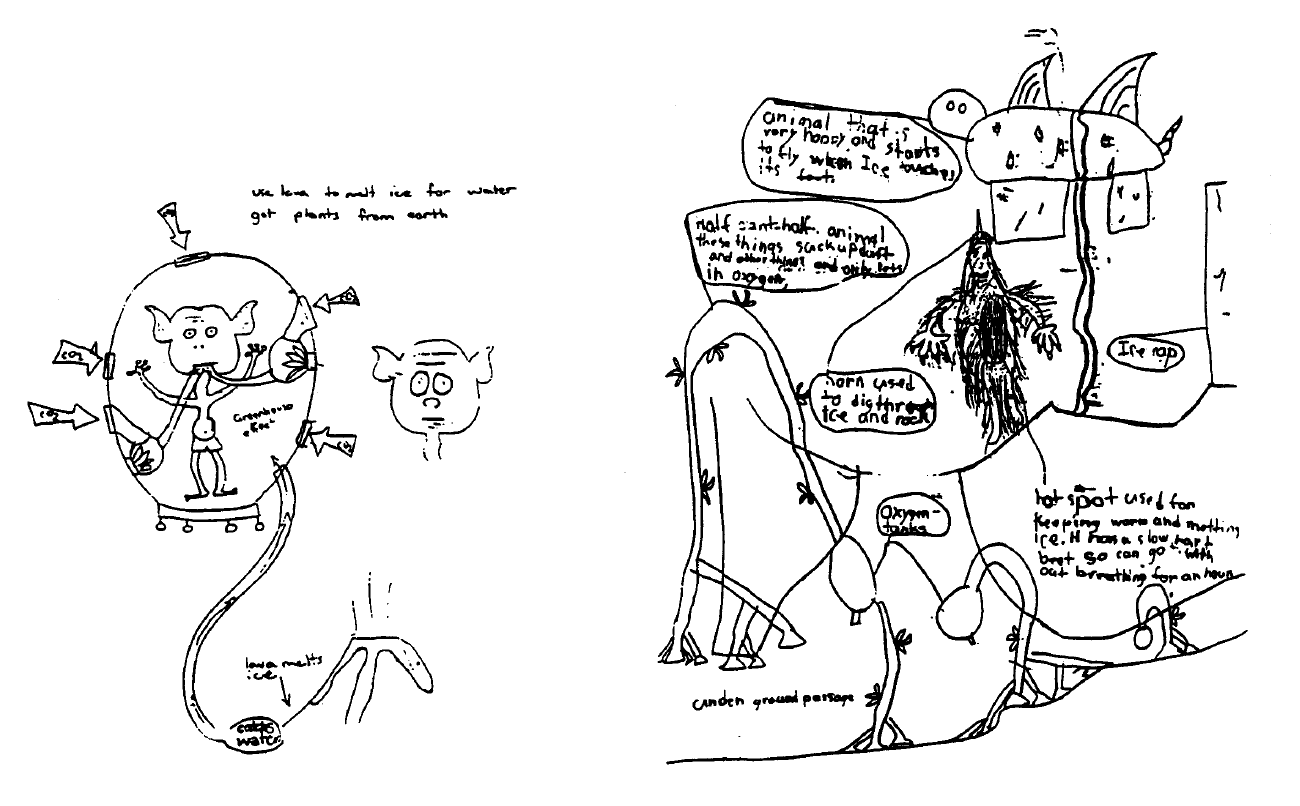 use lava to melt ice for water
get plants from earth
co2
co2
co2
co2
Greenhouse
effect
lava melts
ice
water
animal that is
very heavy and starts
to fly when Ice touches
its feet
half plant-half animal
these things suck up dust
and other things and only lets
in oxygen
horn used
to dig through
Ice and rock
Ice cap
Oxygen-
tanks
hot spot used for
keeping warm and melting
ice. It has a slow hart
beat so can go with
out breathing for an hour
under ground passage